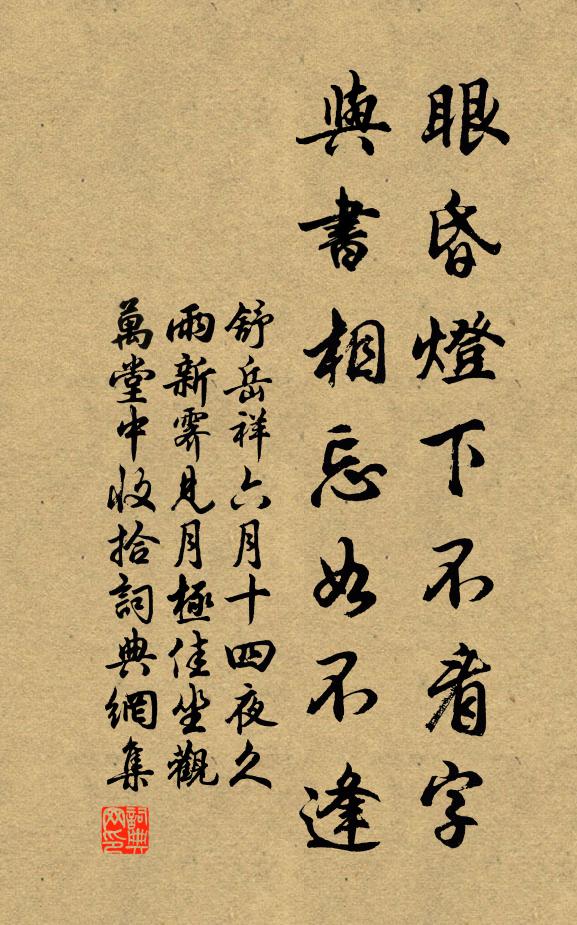 眼昏燈下不看字
與書相忘如不逢
舒岳祥六月十四夜久
雨新霽見月極佳坐觀
萬堂中收拾詞典網集
詞典网印